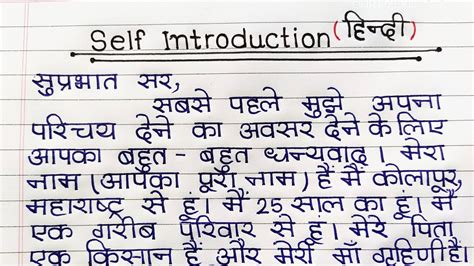 Self Introduction (हिन्दी)
सुप्रभात सर,
सबसे पहले मुझे अपना
परिचय देने का अवसर देने के लिए
आपका बहुत - बहुत धन्यवाद । मेरा
नाम (आपका पूरा नाम) हैं मैं कोलापूर,
महाराष्ट्र से हूं। मैं 25 साल का हूं। मैं
एक गरीब परिवार से हूं। मेरे पिता
एक किसान हैं और मेरी माँ गृहिणी हैं।